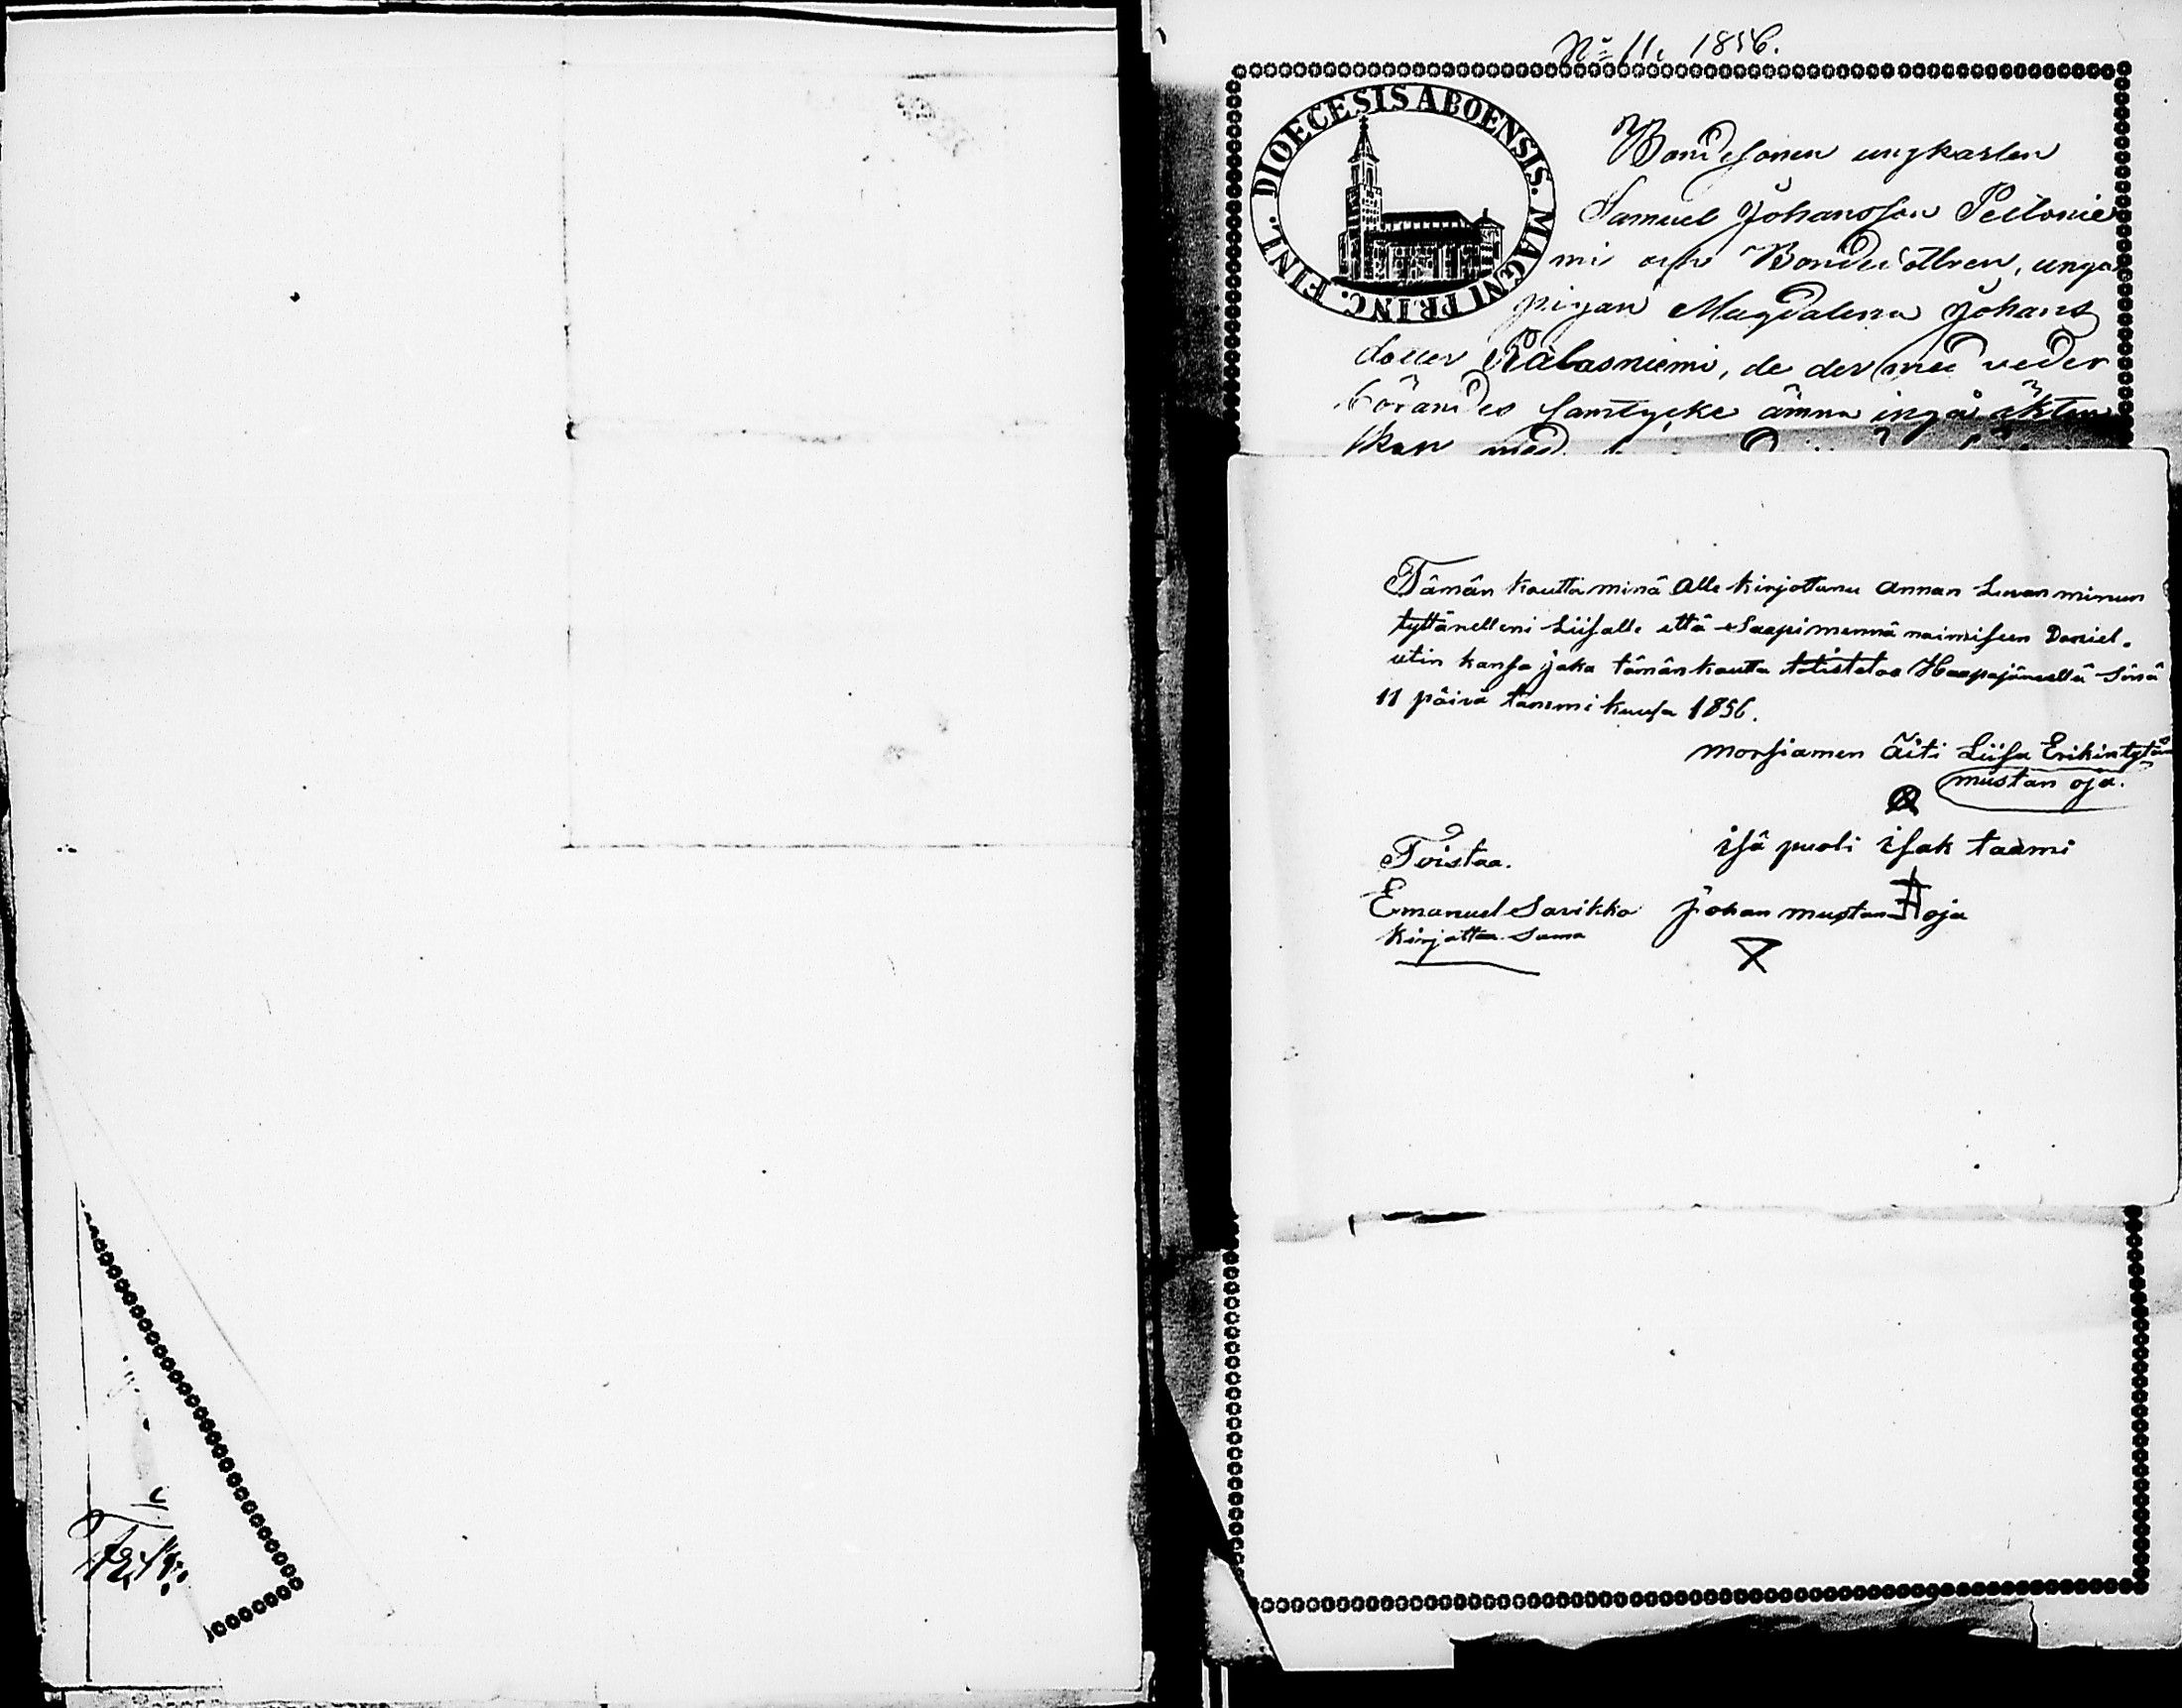 No 11. 1856.
DIOECESIS ABOENSIS. MAGNI PRINC. FINL.
Bondesonen ungkarlen
Samuel Johansson Peltonie
mi och Bondedottren, unga
pigan Magdalena Johans
dotter Kalasniemi, de der med veder
börandes samtycke ämna ingå äkten
skap med
Tämän kautta minä alle kirjottanu annan Luvan minun
tyttärelleni Liisalle että saapi mennä naimiseen Daniel
utin kansa joka tämän kautta totistetaa Haapajärvellä sinä
11 päivä tammi kuusa 1856.
morsiamen äiti Liisa Erikintytär
mustan oja.
isä puoli isak taami
Toistaa.
Emanuel Savikko Johan mustan oja
kirjottaa sama